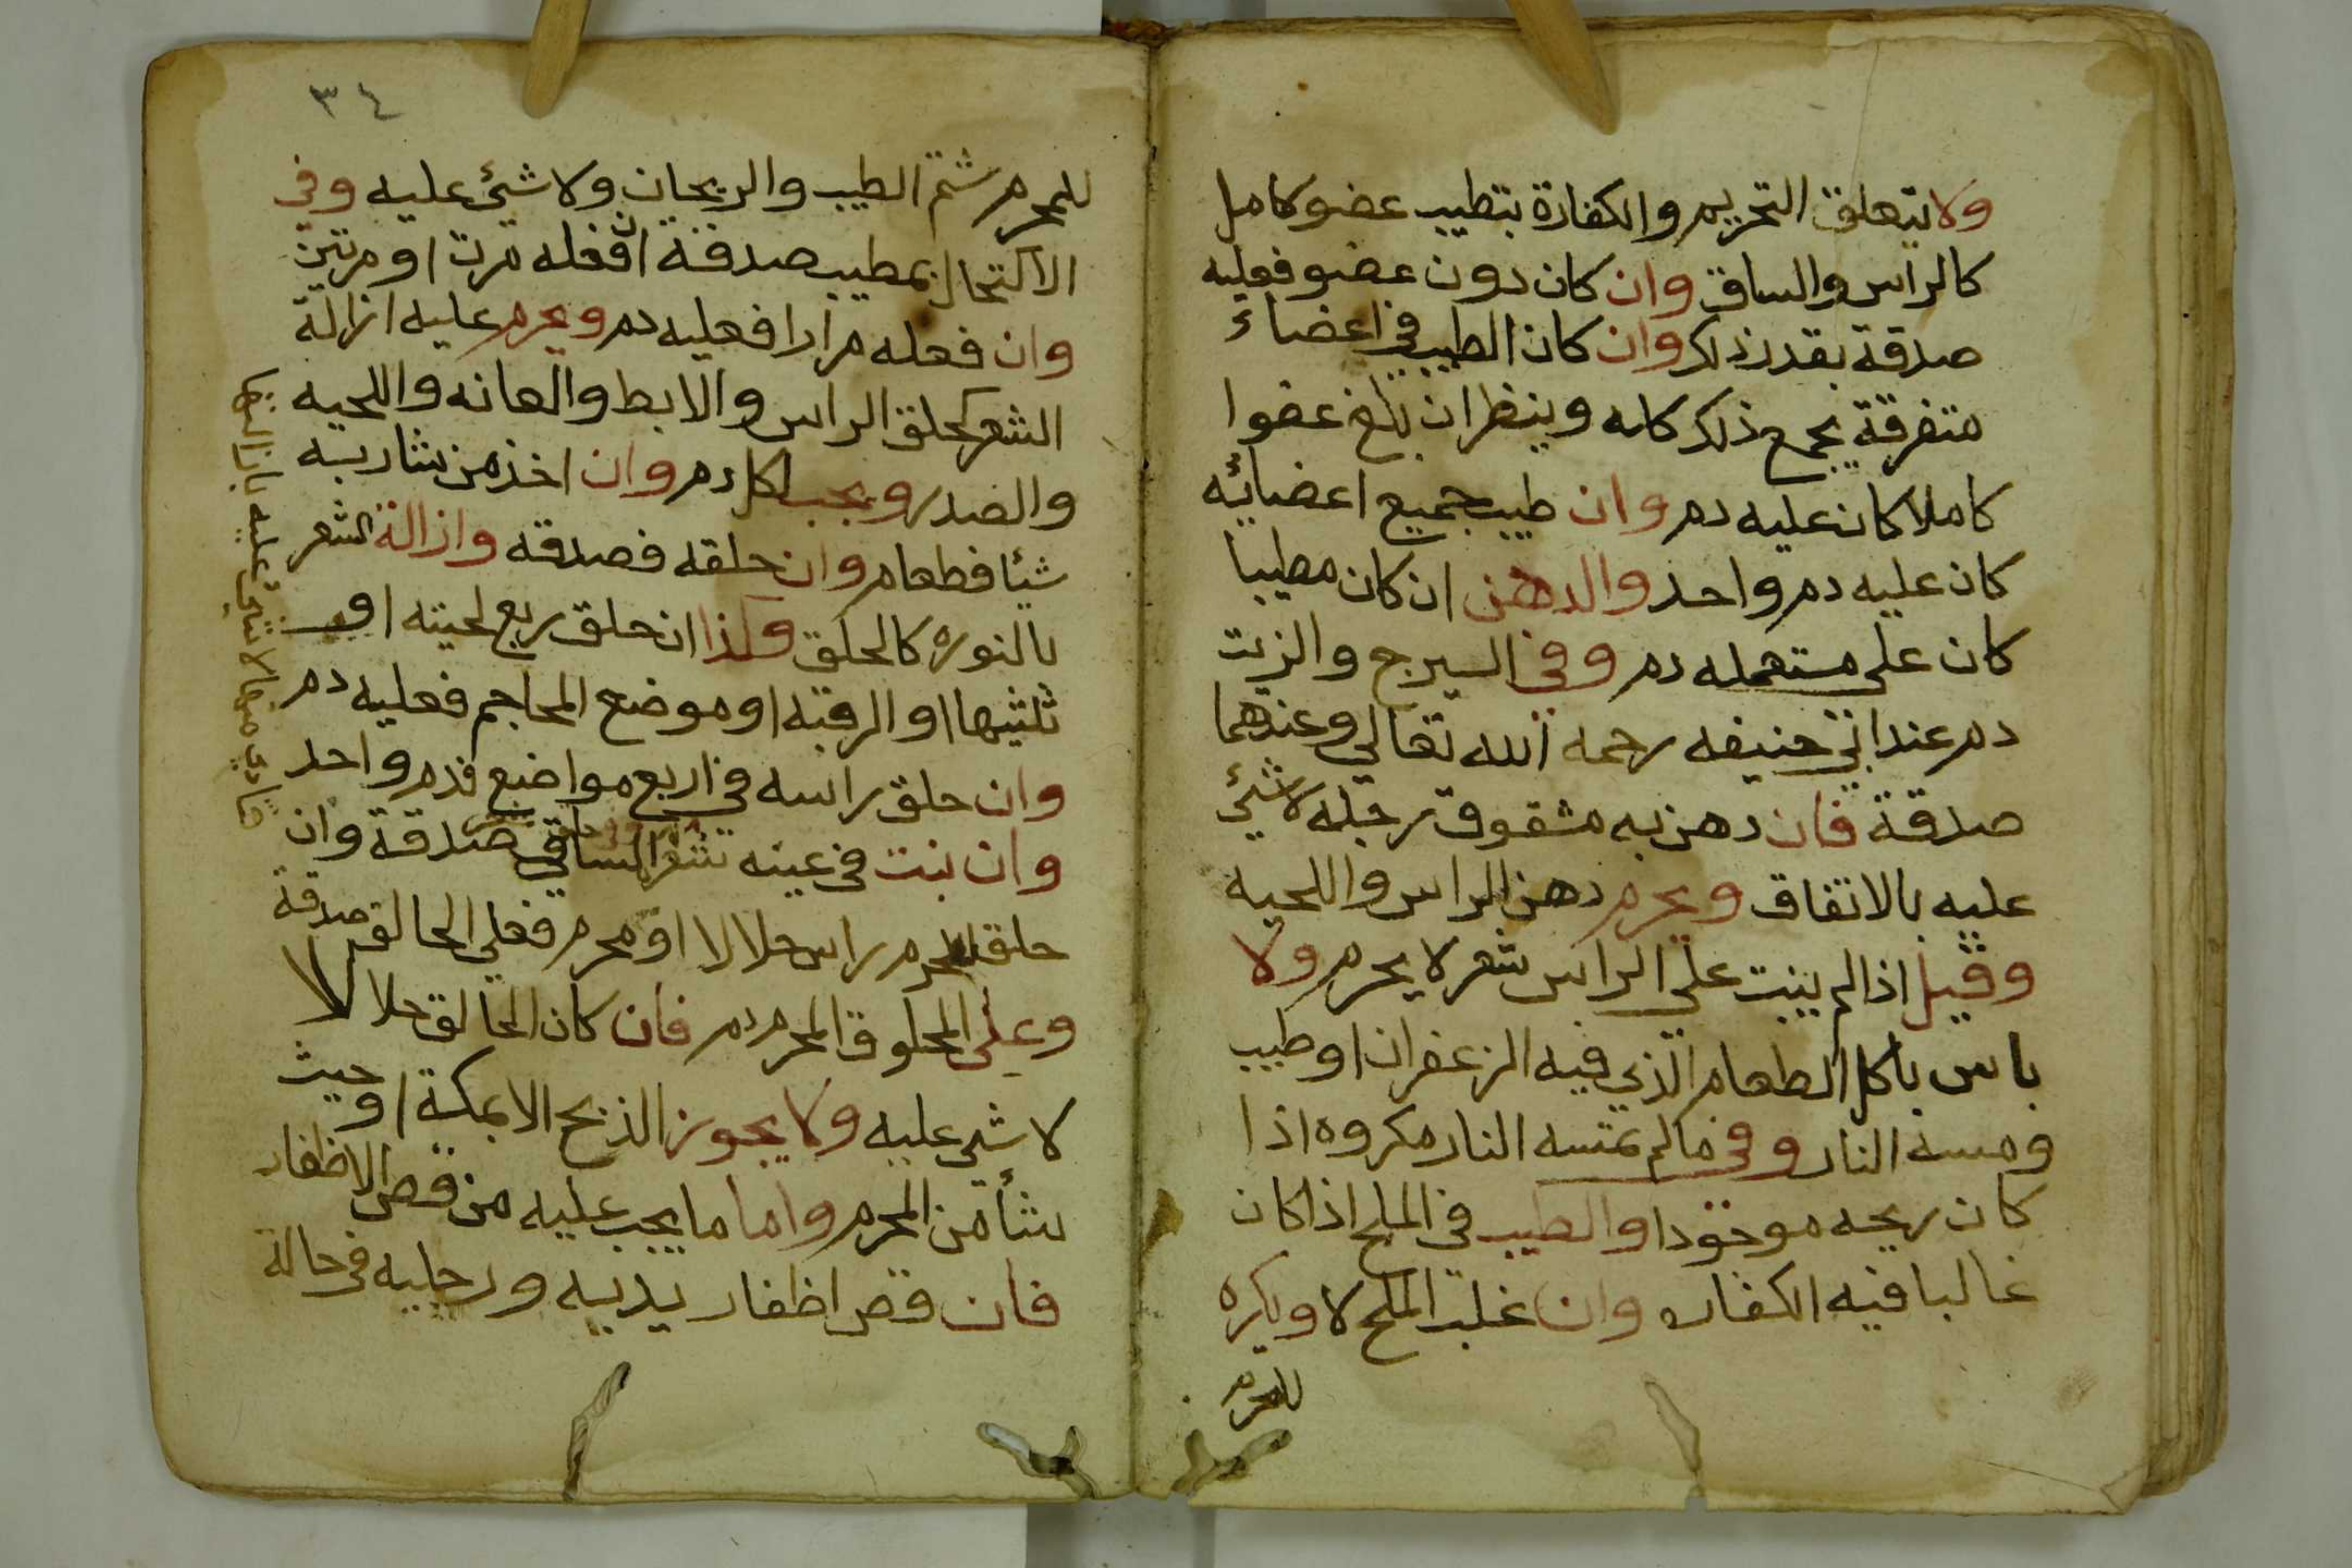 ولا يتعلق التحريم والكفارة بتطيب عضو كامل
كالراس والساق وان كان دون عضو فعليه
صدقة بقدر ذلك وان كان الطيب في اعضاء
متفرقة يجمع ذلك كله وينظر ان بلغ عضوا
كاملا كان عليه دم وان طيب جميع اعضائه
كان عليه دم واحد والدهن ان كان مطيبا
كان على مستعمله دم وفي السيرج والزيت
دم عند ابي حنيفه رحمه الله تعالى وعندهما
صدقة فان دهن به مشقوق رجله لا شئ
عليه بالاتفاق ويحرم دهن الراس واللحية
وقيل اذا لم ينبت على الراس شعر لا يحرم ولا
باس باكل الطعام الذي فيه الزعفران او طيب
ومسه النار وفي ما لم تمسه النار مكروه اذا
كان ريحه موجودا والطيب في الملح اذا كان
غالبا فيه الكفاره وان غلب الملح لا ويكره
للمحرم
٣٤
للمحرم شم الطيب والريحان ولا شئ عليه وفي
الاكتحال بمطيب صدقة ان فعله مرة او مرتين
وان فعله مرارا فعليه دم ويحرم عليه ازالة
الشعر كحلق الراس والابط والعانه واللحيه
والصدر ويجب لكل دم وان اخذ من شاربه
شيئا فطعام وان حلقه فصدقه وازالة الشعر
بالنوره كالحلق وكذا ان حلق ربع لحيته او
ثلثيها او الرقبه او موضع المحاجم فعليه دم
وان حلق راسه في اربع مواضع فدم واحد
وان نبت في عينه شعر صدقة وان
حلق المحرم راس حلالا او محرم فعلى الحالق صدقة
وعلى المحلوق المحرم دم فان كان الحالق حلالا
لا شي عليه ولا يجوز الذبح الا بمكة او حيث
شأ من الحرم واما ما يجب عليه من قص الاظفار
فان قص اظفار يديه ورجليه في حالة
لا شئ عليه